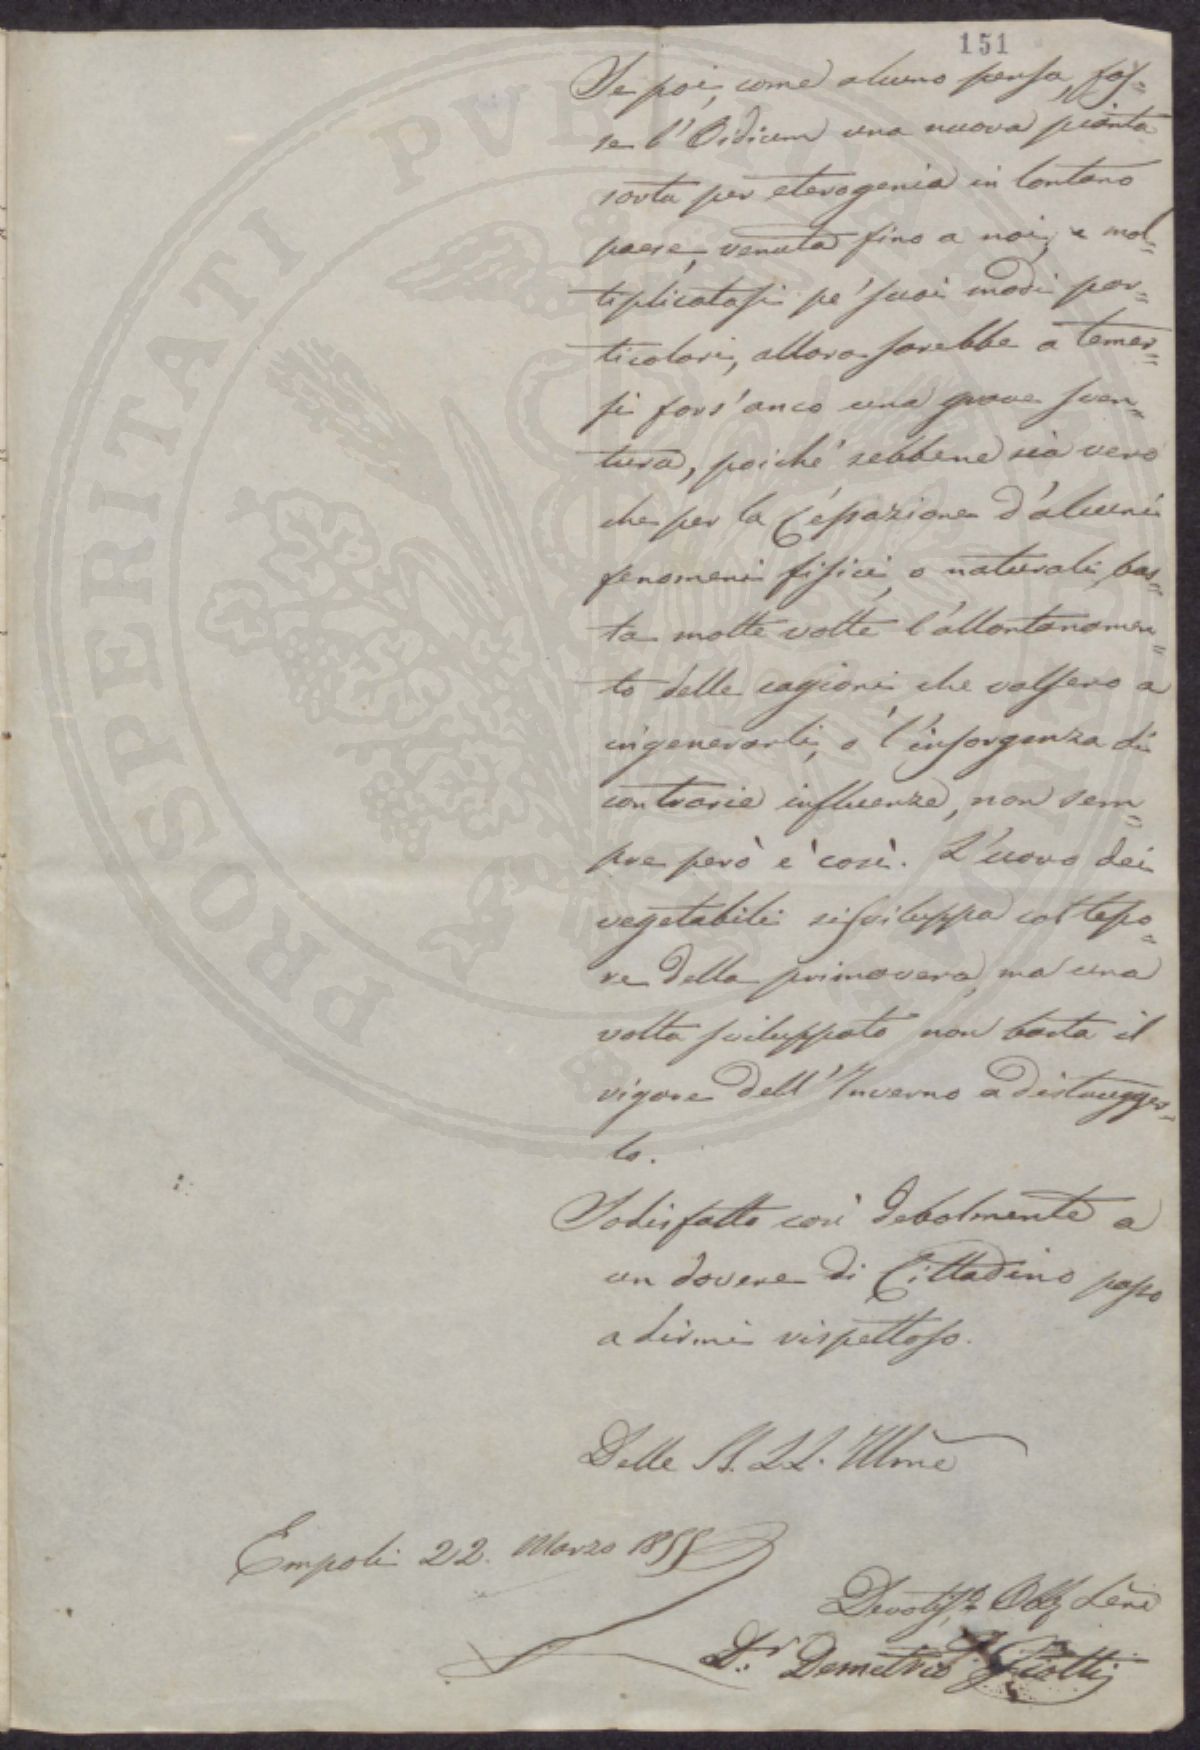 151
Se poi, come alcuno pensa, fos=
se l'Oidium una nuova pianta
sorta per eterogenia in lontano
paese, venuta fino a noi, e mol=
tiplicatasi pe' suoi modi par=
ticolari, allora sarebbe a temer=
si fors'anco una grave sven=
tura, poiché sebbene sia vero
che per la Cessazione d'alcuni
fenomeni fisici, o naturali, bas=
ta molte volte l'allontanamen=
to delle cagioni che valsero a
ingenerarli, o l'insorgenza di
contrarie influenze, non sem=
pre però è così. L'uovo dei
vegetabili si sviluppa col tepo=
re della primavera, ma una
volta sviluppato non basta il
rigore dell'Inverno a distrugger=
lo.
Sodisfatto così debolmente a
un dovere di Cittadino passo
a dirmi rispettoso.
Delle S.S. L.L. Illme
Empoli 22. Marzo 1855
Devotiss.o Obb
D.r Demetrio
PROSPERITATI PVBLICAE